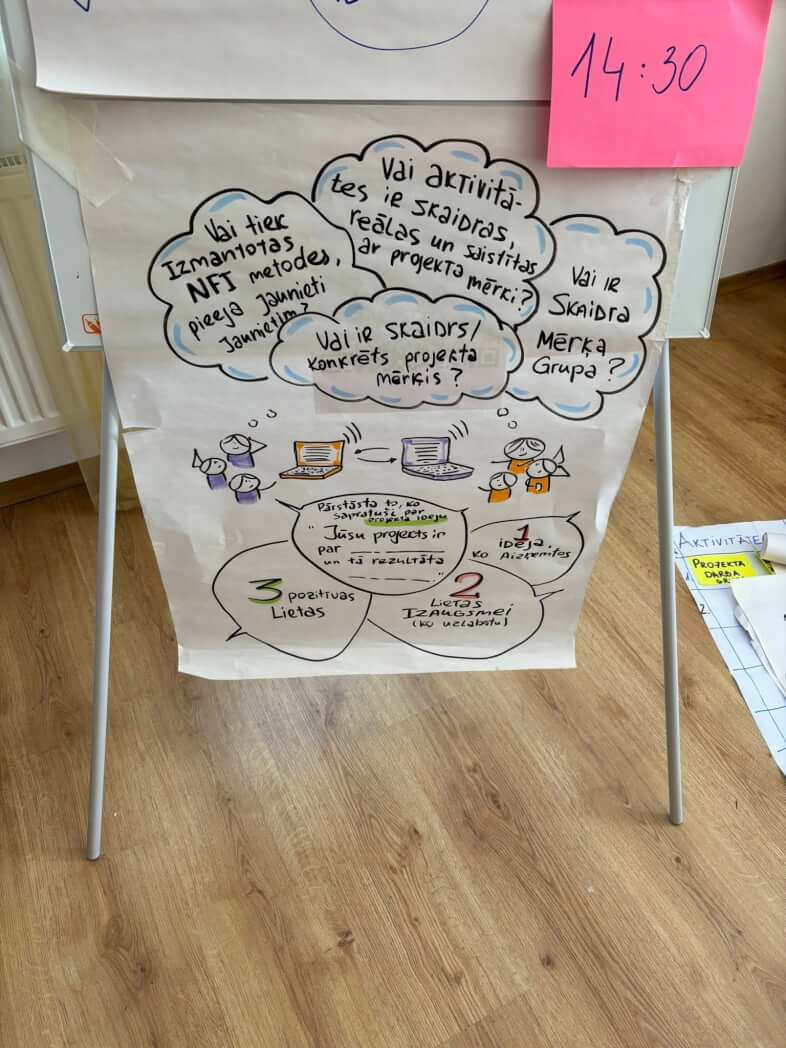 14:30
Vai aktivitā-
tes ir skaidras,
reālas un saistītas
ar projekta mērķi?
Vai tiek
Izmantotas
NFI metodes,
pieeja jaunieti
jaunietim?
Vai ir
Skaidra
Mērķa
Grupa?
Vai ir skaidrs/
konkrēts projekta
mērķis?
Pārstāsta to, ko
sapratuši par
projekta ideju
"Jūsu projekts ir
par _ _ _ _ _ _ _
un tā rezultātā
_ _ _ _ _ _ _"
1
ideja,
ko Aizņemtos
3 pozitīvas
Lietas
2
Lietas
IZAUGSMEI
(ko uzlabotu)
AKTIVITĀTE
PROJEKTA
DARBA
2.